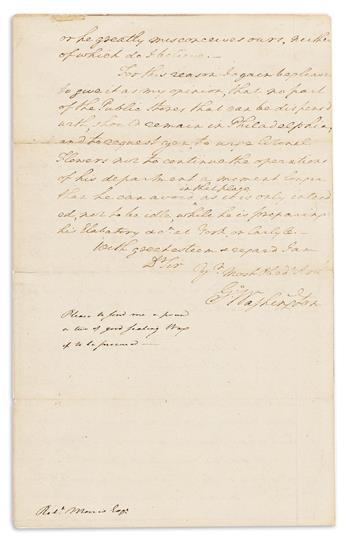 or he greatly misconceives ours, neither
of which do I believe.—
For this reason I again beg leave
to give it as my opinion, that no part
of the Public Stores that can be dispens'd
with, should remain in Philadelphia,
and to request you, to urge Colonel
Flowers not to continue the operations
of his department a moment longer
in that place
than he can avoid, as it is only intend
ed, not to be idle, while he is preparing
his Elabatory &c at York, or Carlyle.—
With great esteem & regard I am
Dr Sir
Yr Most Obed
Go Washington
Please to send me a pound
or two of good Sealing Wax
if to be procured—
Robt. Morris Esqr.